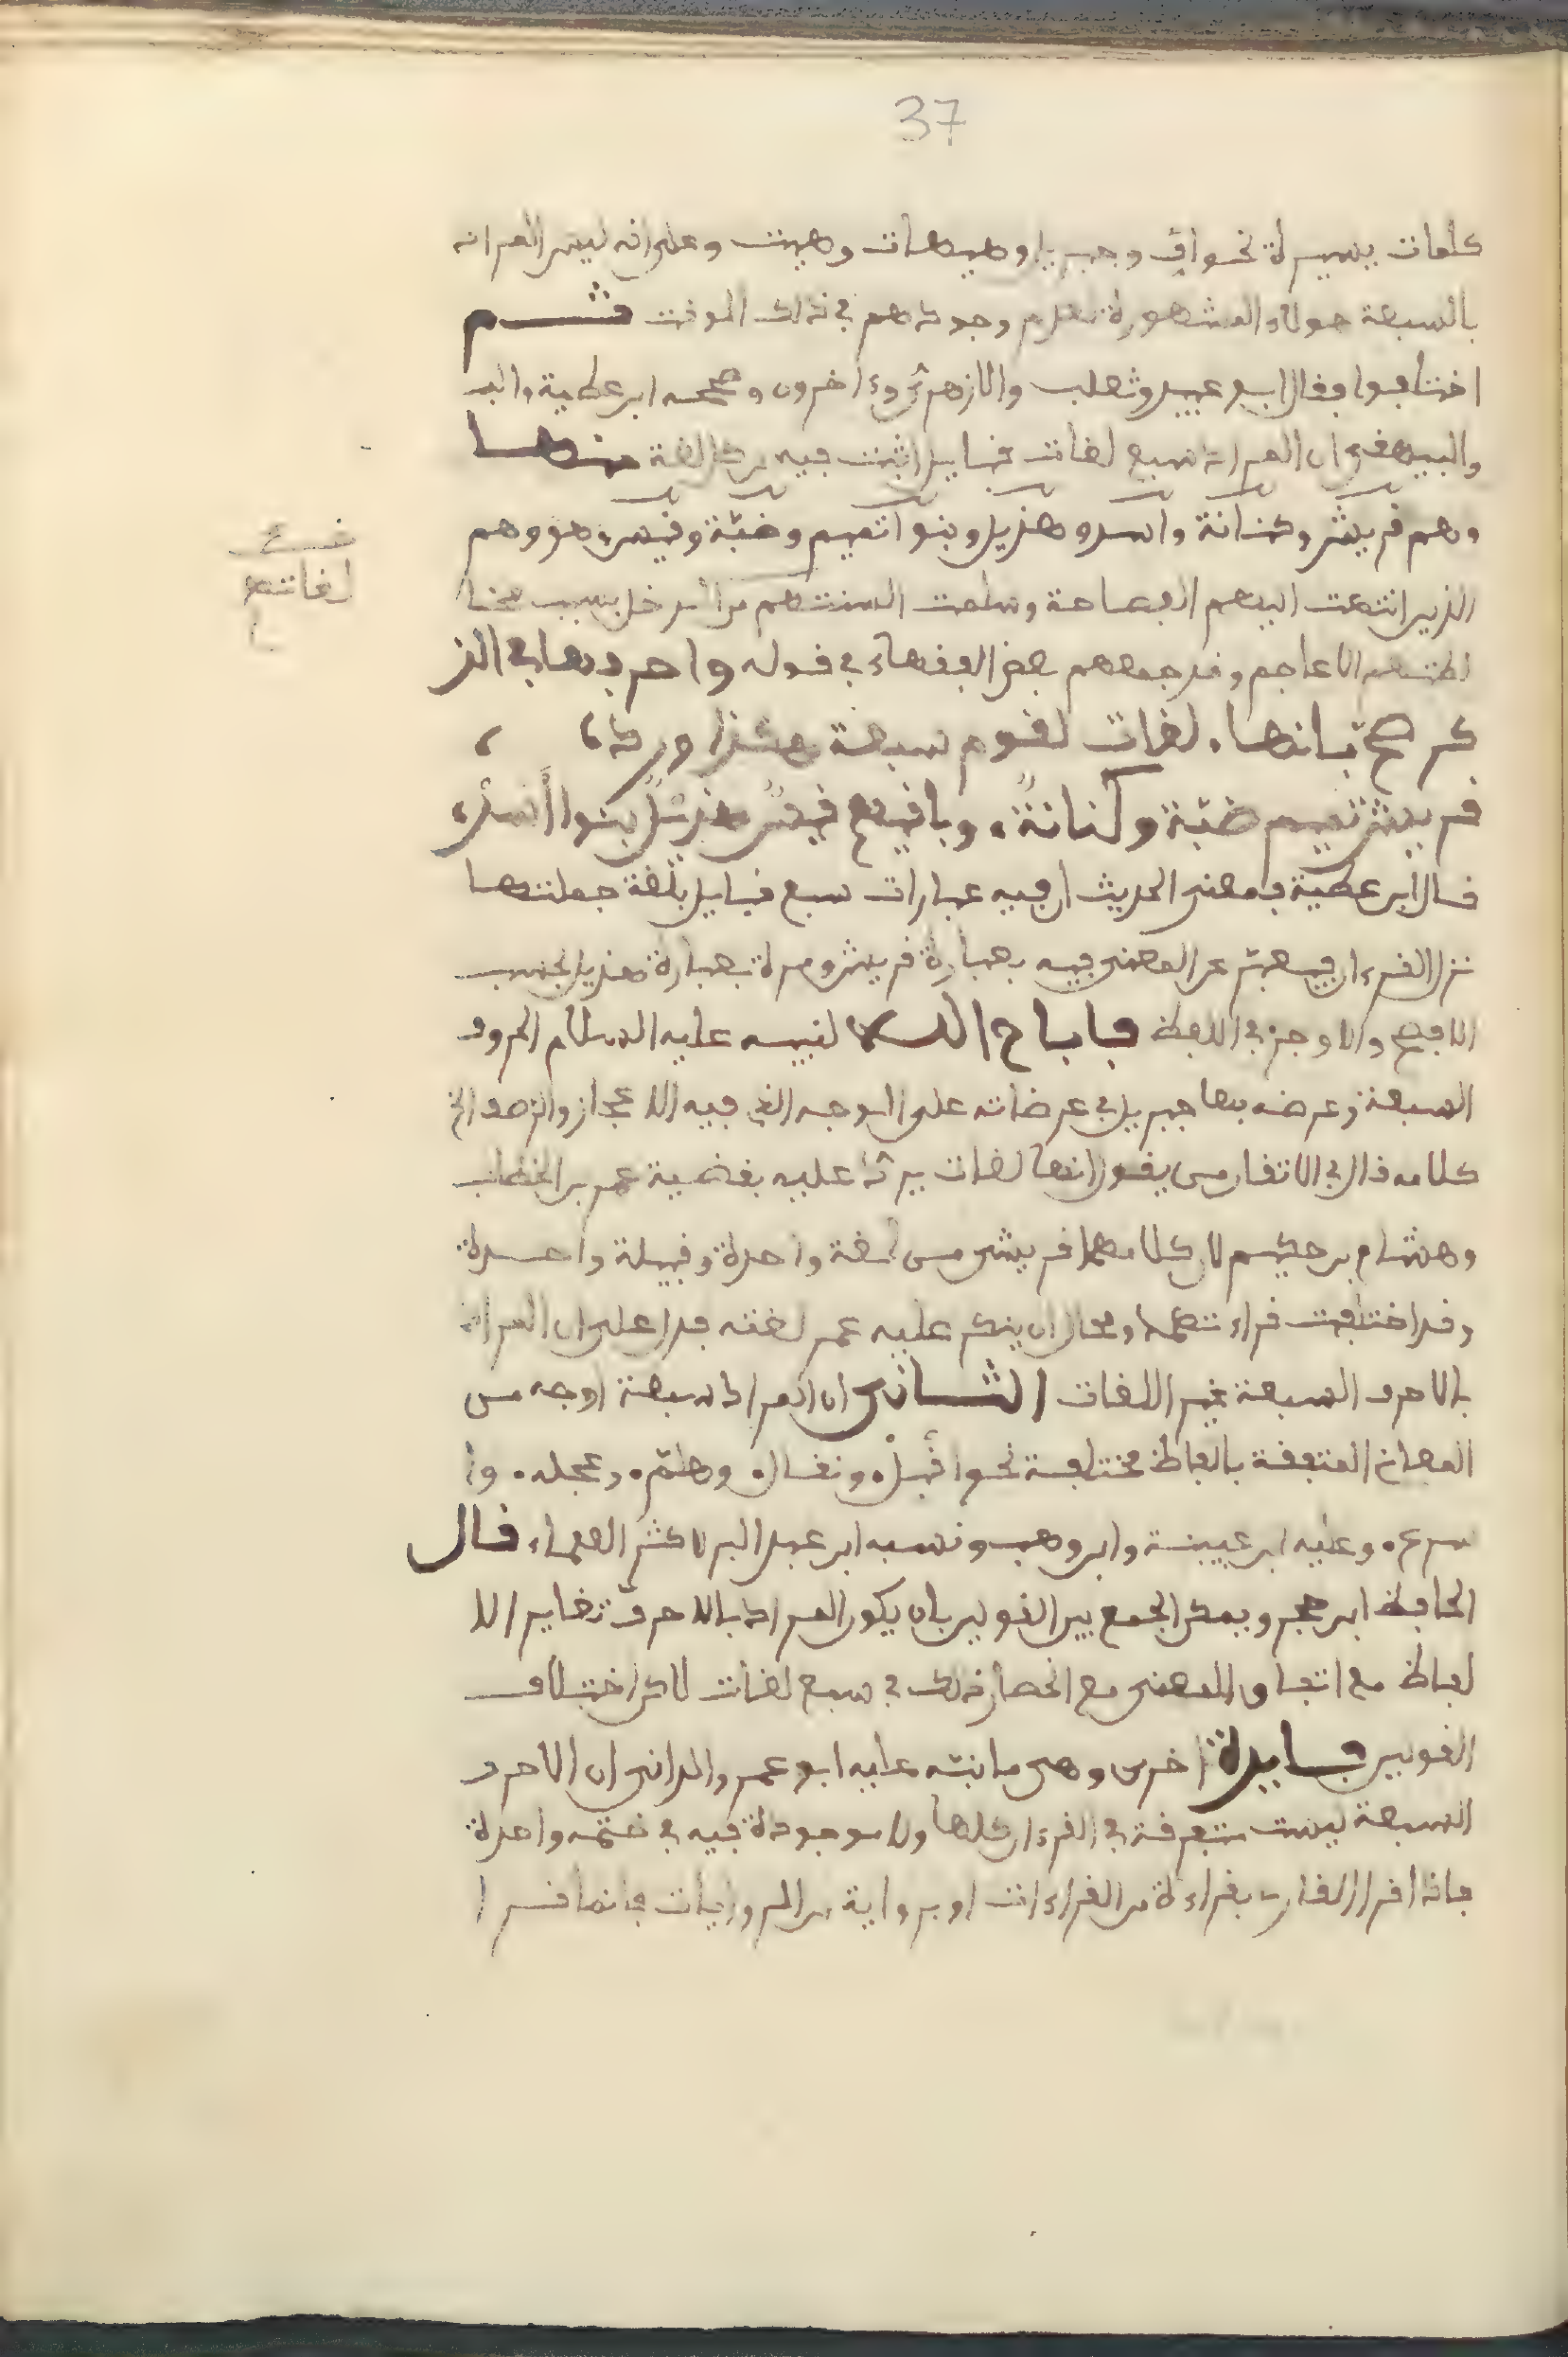 37
كلمات يسيرة نحو اف وجبريل وهيهات وهيت وعلى انه ليس المراد
بالسبعة هولاء المشهورة لعدم وجودهم في ذلك الوقت ثم
اختلفوا فقال ابو عبيد وثعلب والازهري وءاخرون وصححه ابن عطية والبـ
والبيهقي ان المراد سبع لغات قبايل اثبت فيه من كل لغة منها
وهم قريش وكنانة واسد وهذيل وبنوا تميم وضبّة وقيس هو وهم
الذين انتهت اليهم الفصاحة وسلمت السنتهم من الدخل بسبب مخا
لطتهم الاعاجم وقد جمعهم بعض الفقهاء في قوله واحرفها في الذ
كر صحّ بانها لغات لقوم سبعة هكذا ورد،
قريش تميم ضبّة وكنانة، وبافيهم قيس هذيل بنوا أسد،
قال ابن عطية فمعنى الحديث ان فيه عبارات سبع قبايل بلغة جملتها
نزل القرءان فيعبّر عن المعنى فيه بعبارة قريش ومرة بعبارة هذيل بحسب
الافصح والاوجز في اللفظ فاباح الله لنبيه عليه السلام الحروف
السبعة وعرضه بها جبريل في عرضاته على الوجه الذي فيه الاعجاز والرصف الخ
كلامه قال في الاتقان من يقول انها لغات يردّ عليه بقضية عمر بن الخطاب
وهشام بن حكيم لان كلاهما قريشي من لغة واحدة وقبيلة واحدة
وقد اختلفت قراءتهما ومحال ان ينكر عليه عمر لغته فدل على ان المراد
بالاحرف السبعة غير اللغات الثاني ان المراد سبعة اوجه من
المعاني المتفقة بالفاظ مختلفة نحو أقبلْ وتعال وهلمّ وعجل وا
سرع وعليه ابن عيينة وابن وهب ونسبه ابن عبد البر لاكثر العلماء قال
الحافظ ابن حجر ويمكن الجمع بين القولين بان يكون المراد بالاحرف تغاير الا
لفاظ مع اتفاق المعنى مع انحصار ذلك في سبع لغات لاكن اختلاف
القولين فايدة اخرى وهي ما نبّه عليه ابو عمرو الداني ان الاحرف
السبعة ليست متفرقة في القرءان كلها ولا موجودة فيه في ختمة واحدة
فاذا اقرا القارئ بقراءة من القراءات او برواية من الروايات فانما قرا
لغاتهم